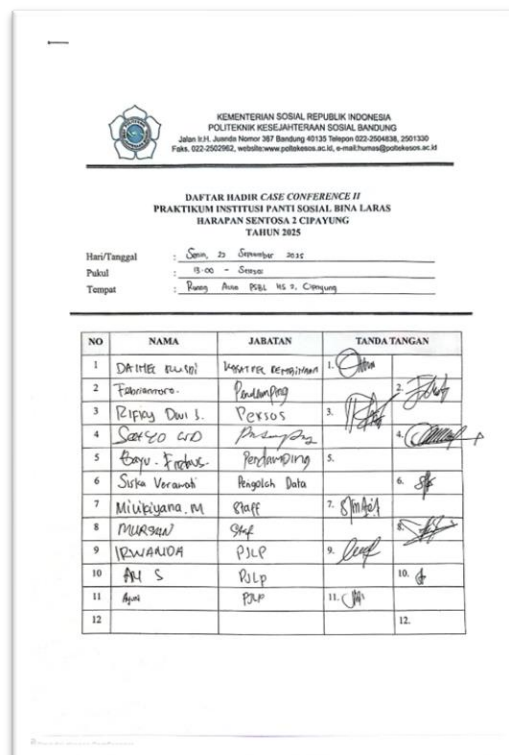 KEMENTERIAN SOSIAL REPUBLIK INDONESIA
POLITEKNIK KESEJAHTERAAN SOSIAL BANDUNG
Jalan Ir.H. Juanda Nomor 367 Bandung 40135 Telepon 022-2504838, 2501330
Faks. 022-2502962, website:www.poltekesos.ac.id, e-mail:humas@poltekesos.ac.id
DAFTAR HADIR CASE CONFERENCE II
PRAKTIKUM INSTITUSI PANTI SOSIAL BINA LARAS
HARAPAN SENTOSA 2 CIPAYUNG
TAHUN 2025
Hari/Tanggal : Senin, 22 September 2025
Pukul : 13.00 - Selesai
Tempat : Ruang Aula PSBL HS 2, Cipayung
NO NAMA JABATAN TANDA TANGAN
1 KASATPEL PEMBINAAN 1.
2 Febriantoro. Pendamping 2.
3 Rifky Dwi S. Peksos 3.
4 Pendamping 4.
5 Bayu. Pendamping 5.
6 Siska Verawati Pengolah Data 6.
7 M Staff 7.
8 MURSAN Staf 8.
9 IRWANDA PJLP 9.
10 S PJLP 10.
11 PJLP 11.
12 12.